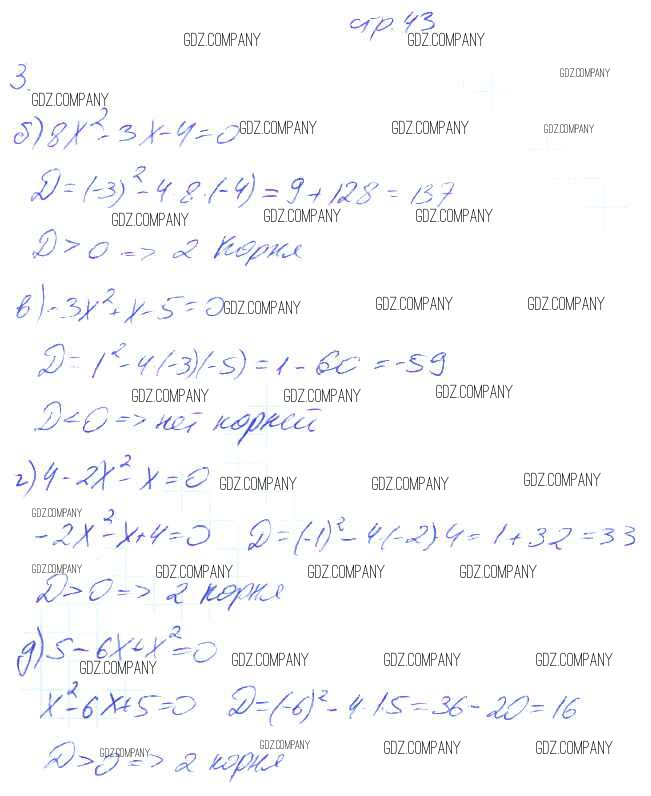 стр. 43
GDZ.COMPANY GDZ.COMPANY
GDZ.COMPANY
3.
GDZ.COMPANY
б) 8x² - 3x - 4 = 0 GDZ.COMPANY GDZ.COMPANY GDZ.COMPANY
D = (-3)² - 4 · 8 · (-4) = 9 + 128 = 137
GDZ.COMPANY GDZ.COMPANY GDZ.COMPANY
D > 0 => 2 корня
в) -3x² + x - 5 = 0 GDZ.COMPANY GDZ.COMPANY GDZ.COMPANY
D = 1² - 4(-3)(-5) = 1 - 60 = -59
GDZ.COMPANY GDZ.COMPANY GDZ.COMPANY
D < 0 => нет корней
г) 4 - 2x² - x = 0 GDZ.COMPANY GDZ.COMPANY GDZ.COMPANY
GDZ.COMPANY
-2x² - x + 4 = 0 D = (-1)² - 4 · (-2) · 4 = 1 + 32 = 33
GDZ.COMPANY GDZ.COMPANY GDZ.COMPANY GDZ.COMPANY
D > 0 => 2 корня
д) 5 - 6x + x² = 0
GDZ.COMPANY GDZ.COMPANY GDZ.COMPANY GDZ.COMPANY
x² - 6x + 5 = 0 D = (-6)² - 4 · 1 · 5 = 36 - 20 = 16
GDZ.COMPANY GDZ.COMPANY GDZ.COMPANY GDZ.COMPANY
D > 0 => 2 корня